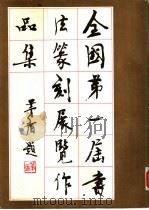 全国第一届书
法篆刻展览作
品集
茅盾题